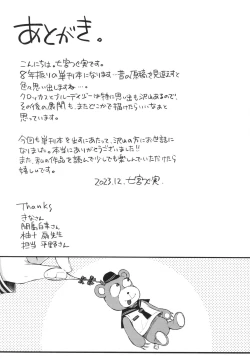 あとがき。
こんにちは。七宮つぐ実です。
8年振りの単行本になります…昔の原稿を見返すと
色々思い出しますね…。
クロッカスとブルーデイジーは特に思い出も沢山あるので、
その後の展開も、またどこかで描けたらいいなぁと
思っています。
今回も単行本を出すにあたって、沢山の方にお世話に
なりました。本当にありがとうございました!!
また、私の作品を読んで少しでも楽しんでいただけたら
嬉しいです。
2023.12. 七宮つぐ実
Thanks
きなさん
柚十 扇先生
担当 平野さん